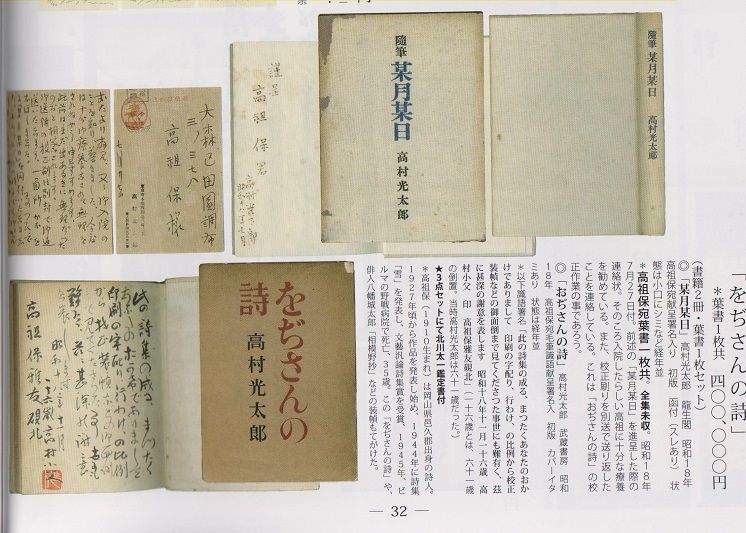 「をぢさんの詩」
＊葉書１枚共、四〇〇、〇〇〇円
（書籍２冊・葉書１枚セット）
◎「某月某日」高村光太郎　龍生閣　昭和18年
高祖保宛献呈署名入　初版　函付（スレあり）　状
態は小口にシミなど経年並
＊高祖保宛葉書一枚共。全集未収。昭和18年
7月27日付。前述の「某月某日」を進呈した際の
連絡状。そのころ入院したらしい高祖に十分な療養
を勧めている。また、校正刷りを別送で送り返した
ことを連絡している。これは「おぢさんの詩」の校
正作業の事であろう。
◎「おぢさんの詩」　高村光太郎　武蔵書房　昭和
18年　高祖保宛毛筆識語献呈署名入　初版　カバーイタ
ミあり　状態は経年並
＊以下識語署名「此の詩集の成る、まつたくあなたのおか
げでありまして　印刷の字配り、行わけ、の比例から校正
装幀などの御面倒まで見てくださつた事世にも難有く、茲
に甚深の謝意を表します　昭和十八年十一月一十六歳　高
村小父　印　高祖保雅友硯北」（一十六歳とは、六十一歳
の倒置。当時高村光太郎は六十一歳だった。）
★３点セットにて北川太一鑑定書付
＊高祖保（1910生まれ）は岡山県邑久郡出身の詩人。
1927年頃から作品を発表し始め、1944年に詩集
「雪」を発表し、文藝汎論詩集賞を受賞、1945年、ビ
ルマの野戦病院で死亡、35歳。この「をぢさんの詩」や、
俳人八幡城太郎「相模野抄」などの装幀もてがけた。
随筆 某月某日　高村光太郎
随筆
某月某日
高村光太郎
謹呈
高祖保君
高村光太郎
大森区田園調布
三ノ三七八
高祖保様
をぢさんの
詩
高村光太郎
此の詩集の成る、まつたく
あなたのおかげでありまして
印刷の字配り、行わけの比例
から校正装幀などの御面倒
高祖保雅友硯北
— 32 —